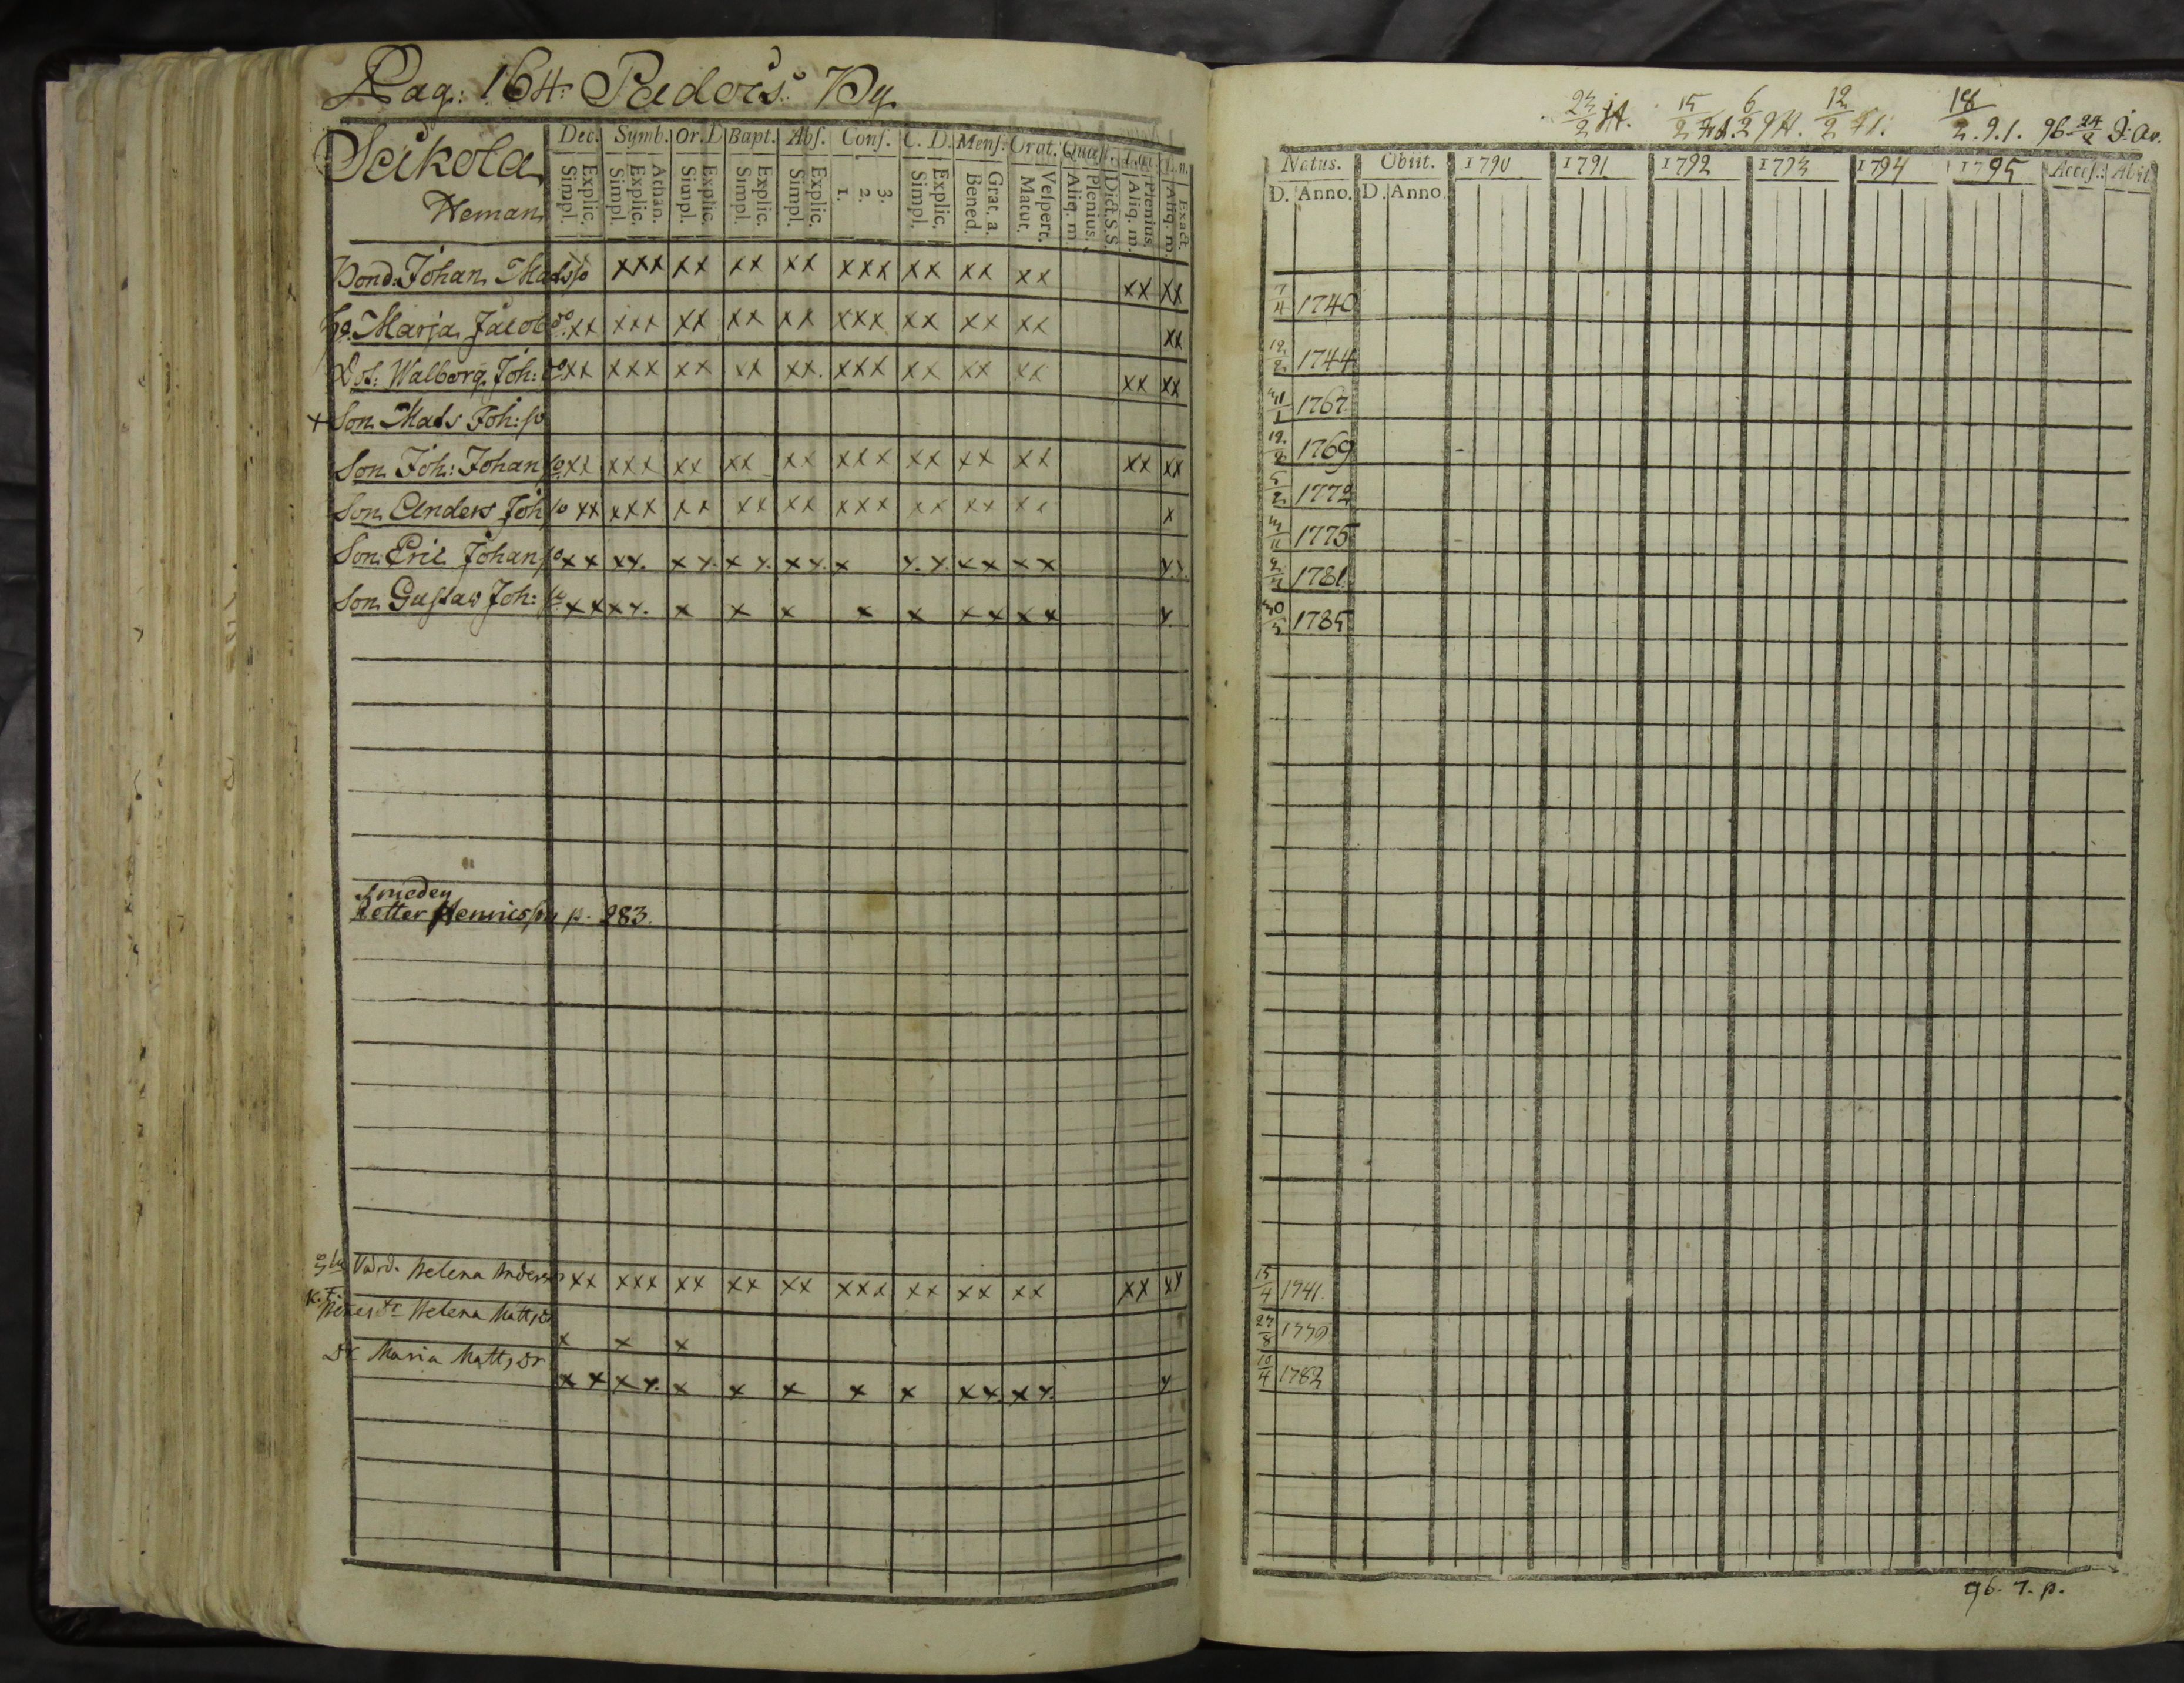 Pag: 164 Padois By
Seikola
Heman
Dec. Symb. Or. D Bapt. Abs. Conf. C. D. Mens. Orat. Quæst.
Simpl. Explic. Simpl. Explic. Athan. Simpl. Explic. Simpl. Explic. Simpl. Explic. 1. 2. 3. Simpl. Explic. Bened. Grat. a. Matut. Vespert. Aliq. m. Plenius. Dict. S. S. Aliq. m. Plenius. Aliq. m. Exact.
Bond. Johan Madsso xx xxx xx xx xx xxx xx xx xx xx xx
Hu. Marja Jacobsdr xx xxx xx xx xx xxx xx xx xx xx
Dot: Walborg Joh: dr xx xxx xx xx xx. xxx xx xx xx xx xx
+ Son Mats Joh: so
Son Joh: Johanso xx xxx xx xx xx xxx xx xx xx xx xx
Son Anders Johso xx xxx xx xx xx xxx xx xx xx x
Son Eric Johanso xx xx. xx xx. xx. x x.x. xx xx xx
Son Gustav Joh: so xx xx. x x x x x xx xx x
Smeden
Petter Henricsson p. 283.
Värd. Helena Anders xx xxx xx xx xx xxx xx xx xx xx xx
Helena Matts dr x x x
Dr Maria Matts dr xx xx. x x x x x xx. xx. x
23/2 15/2 6/2 12/2 18/2 . 9. 1. 96 24/2
Natus. Obiit. 1790 1791 1792 1793 1794 1795 Access. Abit
D. Anno. D. Anno
7/4 1740
12/2 1744
1767
12/8 1769
5/2 1772
1775
1781
30/5 1785
15/4 1741.
27/8 1779
10/4 1782
96. 7. p.